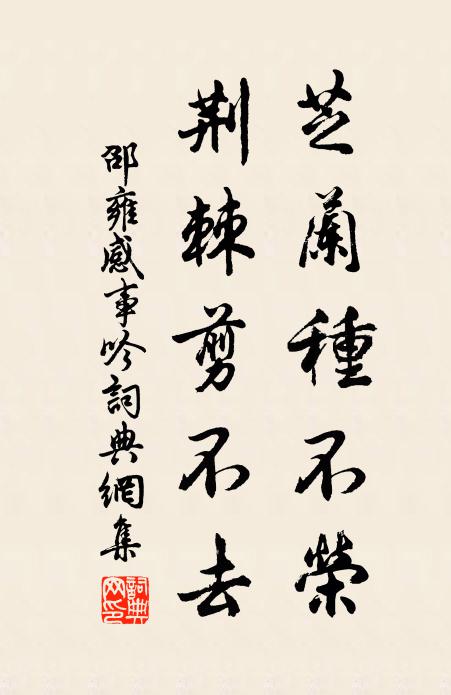 芝蘭種不榮
荆棘剪不去
邵雍感事吟詞典網集
詞典网印